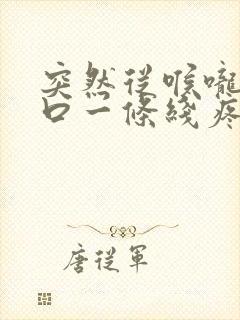 突然從喉嚨
口一條綫疼
唐從軍